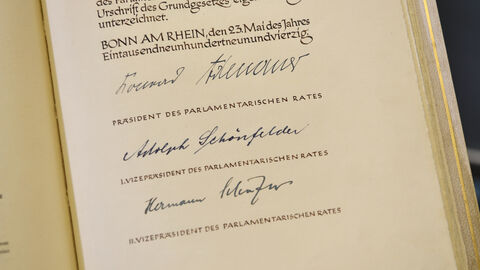 Urschrift des Grundgesetzes eigenhändig
unterzeichnet.
BONN AM RHEIN, den 23. Mai des Jahres
Eintausendneunhundertneunundvierzig
Konrad Adenauer
PRÄSIDENT DES PARLAMENTARISCHEN RATES
Adolph Schönfelder
I. VIZEPRÄSIDENT DES PARLAMENTARISCHEN RATES
Hermann Schäfer
II. VIZEPRÄSIDENT DES PARLAMENTARISCHEN RATES